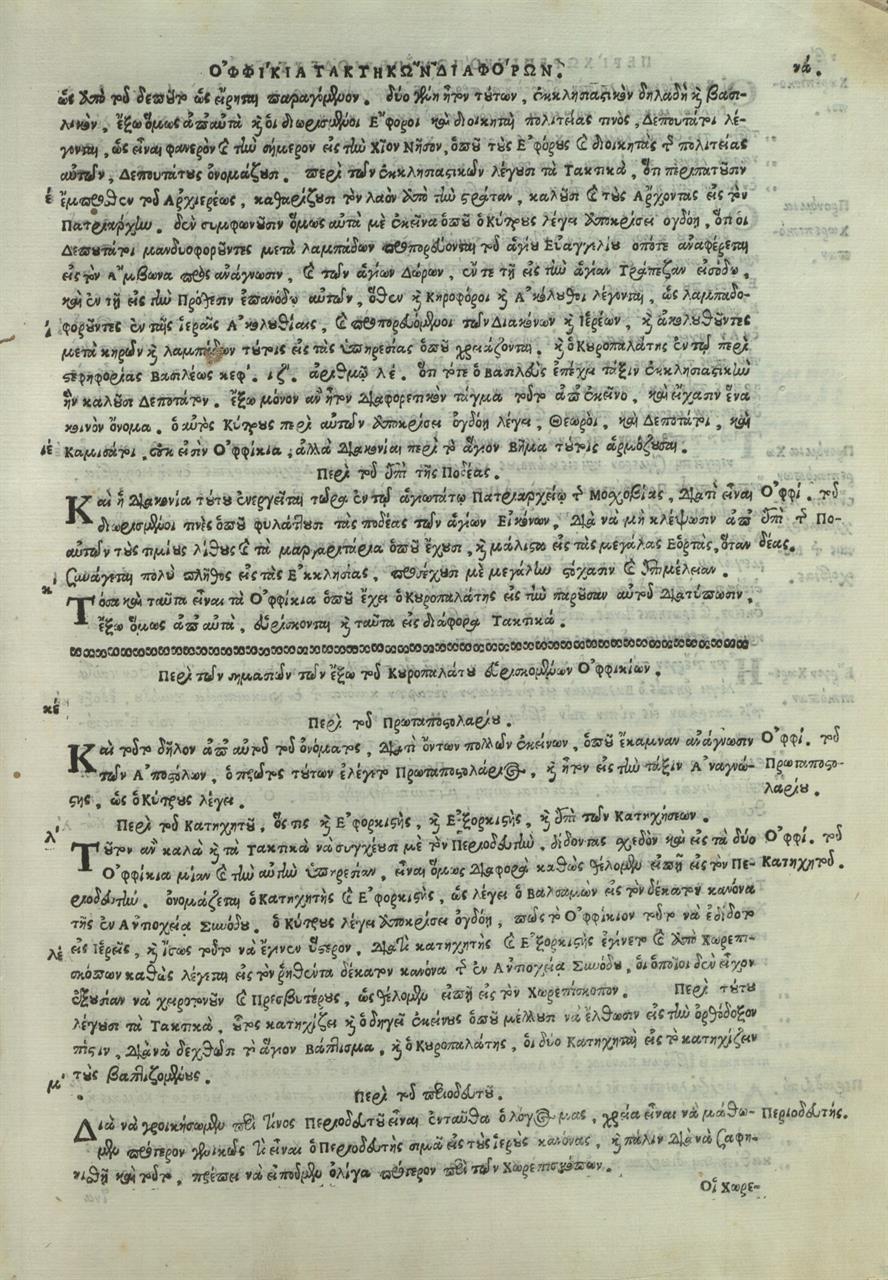 ΟΦΦΙΚΙΑ ΤΑΚΤΗΚΩΝ ΔΙΑΦΟΡΩΝ. να.
ὡς ἀπὸ τοῦ δεποῦτο ὡς εἴρηται παραγόμενον. δύο γένη ἦτον τούτων, ἐκκλησιαστικὸν δηλαδὴ καὶ βασι-
λικὸν, ἔξω ὅμως ἀπ' αὐτὰ καὶ οἱ διωρισμένοι Ἔφοροι καὶ διοικηταὶ πολιτείας τινὸς, Δεπουτάτοι λέ-
γονται, ὡς εἶναι φανερὸν καὶ τὴν σήμερον εἰς τὴν Χῖον Νῆσον, ὁποῦ τοὺς Ἐφόρους καὶ διοικητὰς τῆς πολιτείας
αὐτῶν, Δεπουτάτους ὀνομάζουσι. περὶ τῶν ἐκκλησιαστικῶν λέγουσι τὰ Τακτικὰ, ὅτι περιπατοῦσιν
έ ἔμπροσθεν τοῦ Ἀρχιερέως, καθαρίζουσι τὸν λαὸν ἀπὸ τὴν στράταν, καλοῦσι καὶ τοὺς Ἄρχοντας εἰς τὸν
Πατριάρχην. δὲν συμφωνοῦσιν ὅμως αὐτὰ μὲ ἐκεῖνα ὁποῦ ὁ Κύτρους λέγει ἀποκρίσει ὀγδόῃ, ὅτι οἱ
Δεπουτάτοι μανδυοφοροῦντες μετὰ λαμπάδων προπορεύονται τοῦ ἁγίου Εὐαγγελίου ὁπότε ἀναφέρεται
εἰς τὸν Ἄμβωνα πρὸς ἀνάγνωσιν, καὶ τῶν ἁγίων Δώρων, ἔν τε τῇ εἰς τὴν ἁγίαν Τράπεζαν εἰσόδῳ,
καὶ ἐν τῇ εἰς τὴν Πρόθεσιν ἐπανόδῳ αὐτῶν, ὅθεν καὶ Κηροφόροι καὶ Ἀκόλουθοι λέγονται, ὡς λαμπαδο-
ί φοροῦντες ἐν ταῖς ἱεραῖς Ἀκολουθίαις, καὶ προπορευόμενοι τῶν Διακόνων καὶ Ἱερέων, καὶ ἀκολουθῶντες
μετὰ κηρῶν καὶ λαμπάδων τούτοις εἰς τὰς ὑπηρεσίας ὁποῦ χρειάζονται. καὶ ὁ Κυροπαλάτης ἐν τῷ περὶ
στεφηφορίας Βασιλέως κεφ. ιζ. ἀριθμῷ λέ. ὅτι τότε ὁ Βασιλεὺς ἐπέχει τάξιν ἐκκλησιαστικὴν
ἣν καλοῦσι Δεποτάτον. ἔξω μόνον ἂν ἦτον διαφορετικὸν τάγμα τοῦτο ἀπὸ ἐκεῖνο, καὶ εἴχασιν ἕνα
κοινὸν ὄνομα. ὁ αὐτὸς Κύτρους περὶ αὐτῶν ἀποκρίσει ὀγδόῃ λέγει, Θεωροὶ, καὶ Δεποτάτοι, καὶ
ιέ Καμισάτοι, οὐκ εἰσὶν Ὀφφίκια, ἀλλὰ Διακονίαι περὶ τὸ ἅγιον Βῆμα τούτοις ἁρμόζουσαι.
Περὶ τοῦ ἐπὶ τῆς Ποδέας.
Καὶ ἡ Διακονία τούτου ἐνεργεῖται τώρα ἐν τῷ ἁγιωτάτῳ Πατριαρχείῳ τῆς Μοσχοβίας, Διατὶ εἶναι Ὀφφί. τοῦ
διωρισμένοι τινὲς ὁποῦ φυλάττουσι τὰς ποδέας τῶν ἁγίων Εἰκόνων, Διὰ νὰ μὴ κλέψωσιν ἀπ' ἐπὶ τῆς Πο-
αὐτῶν τοὺς τιμίους λίθους καὶ τὰ μαργαριτάρια ὁποῦ ἔχουσι, καὶ μάλιστα εἰς τὰς μεγάλας Ἑορτὰς, ὅταν δέας.
συνάγεται πολὺ πλῆθος εἰς τὰς Ἐκκλησίας, προσέχουσι μὲ μεγάλην στόχασιν καὶ ἐπιμέλειαν.
κ Τόσα καὶ ταῦτα εἶναι τὰ Ὀφφίκια ὁποῦ ἔχει ὁ Κυροπαλάτης εἰς τὴν παροῦσαν αὐτοῦ Διατύπωσιν,
ἔξω ὅμως ἀπ' αὐτὰ, εὑρίσκονται καὶ ταῦτα εἰς διάφορα Τακτικά.
Περὶ τῶν σημασιῶν τῶν ἔξω τοῦ Κυροπαλάτου εὑρισκομένων Ὀφφικίων.
κέ
Περὶ τοῦ Πρωταποστολαρίου.
Καὶ τοῦτο δῆλον ἀπ' αὐτοῦ τοῦ ὀνόματος, Διατὶ ὄντων πολλῶν ἐκείνων, ὁποῦ ἔκαμναν ἀνάγνωσιν Ὀφφί. τοῦ
τῶν Ἀποστόλων, ὁ πρῶτος τούτων ἐλέγετο Πρωταποστολάριος, καὶ ἦτον εἰς τὴν τάξιν Ἀναγνώ- Πρωταποστο-
στης, ὡς ὁ Κύτρους λέγει. λαρίου.
Περὶ τοῦ Κατηχητοῦ, ὅστις καὶ Ἐφορκιστὴς, καὶ Ἐξορκιστὴς, καὶ ἐπὶ τῶν Κατηχήσεων.
λ' Τοῦτον ἂν καλὰ καὶ τὰ Τακτικὰ νὰ συγχέουσι μὲ τὸν Περιοδευτὴν, δίδοντας σχεδὸν καὶ εἰς τὰ δύο Ὀφφί. τοῦ
Ὀφφίκια μίαν καὶ τὴν αὐτὴν ὑπηρεσίαν, εἶναι ὅμως Διαφορὰ καθὼς θέλομεν εἰπῇ εἰς τὸν Πε- Κατηχητοῦ.
ριοδευτήν. ὀνομάζεται ὁ Κατηχητὴς καὶ Ἐφορκιστὴς, ὡς λέγει ὁ Βαλσαμὼν εἰς τὸν δέκατον κανόνα
τῆς ἐν Ἀντιοχείᾳ Συνόδου. ὁ Κύτρους λέγει ἀποκρίσει ὀγδόῃ, πῶς τὸ Ὀφφίκιον τοῦτο νὰ ἐδίδετο
λέ εἰς Ἱερεῖς, καὶ ἴσως τοῦτο νὰ ἔγινεν ὕστερον. Διατὶ κατηχητὴς καὶ Ἐξορκιστὴς ἐγίνετο καὶ ἀπὸ Χωρεπι-
σκόπων καθὼς λέγεται εἰς τὸν ῥηθέντα δέκατον κανόνα τῆς ἐν Ἀντιοχείᾳ Συνόδου, οἱ ὁποῖοι δὲν εἶχον
ἐξουσίαν νὰ χειροτονοῦν καὶ Πρεσβυτέρους, ὡς θέλομεν εἰπῇ εἰς τὸν Χωρεπίσκοπον. Περὶ τούτου
λέγουσι τὰ Τακτικὰ, οὗτος κατηχίζει καὶ ὁδηγεῖ ἐκείνους ὁποῦ μέλλουσι νὰ ἔλθωσιν εἰς τὴν ὀρθόδοξον
πίστιν, Διὰ νὰ δεχθῶσι τὸ ἅγιον Βάπτισμα, καὶ ὁ Κυροπαλάτης, οἱ δύο Κατηχηταὶ εἰς τὸ κατηχίζειν
μ' τοὺς βαπτιζομένους.
Περὶ τοῦ περιοδευτοῦ.
Διὰ νὰ γροικήσωμεν περὶ τίνος Περιοδευτοῦ εἶναι ἐνταῦθα ὁ λόγος μας, χρεία εἶναι νὰ μάθω- Περιοδευτής.
μεν πρότερον γενικῶς τί εἶναι ὁ Περιοδευτὴς σιμὰ εἰς τοὺς ἱεροὺς κανόνας, καὶ πάλιν Διὰ νὰ σαφη-
νισθῇ καὶ τοῦτο, πρέπει νὰ εἰποῦμεν ὀλίγα πρότερον περὶ τῶν Χωρεπισκόπων.
Οἱ Χωρε-